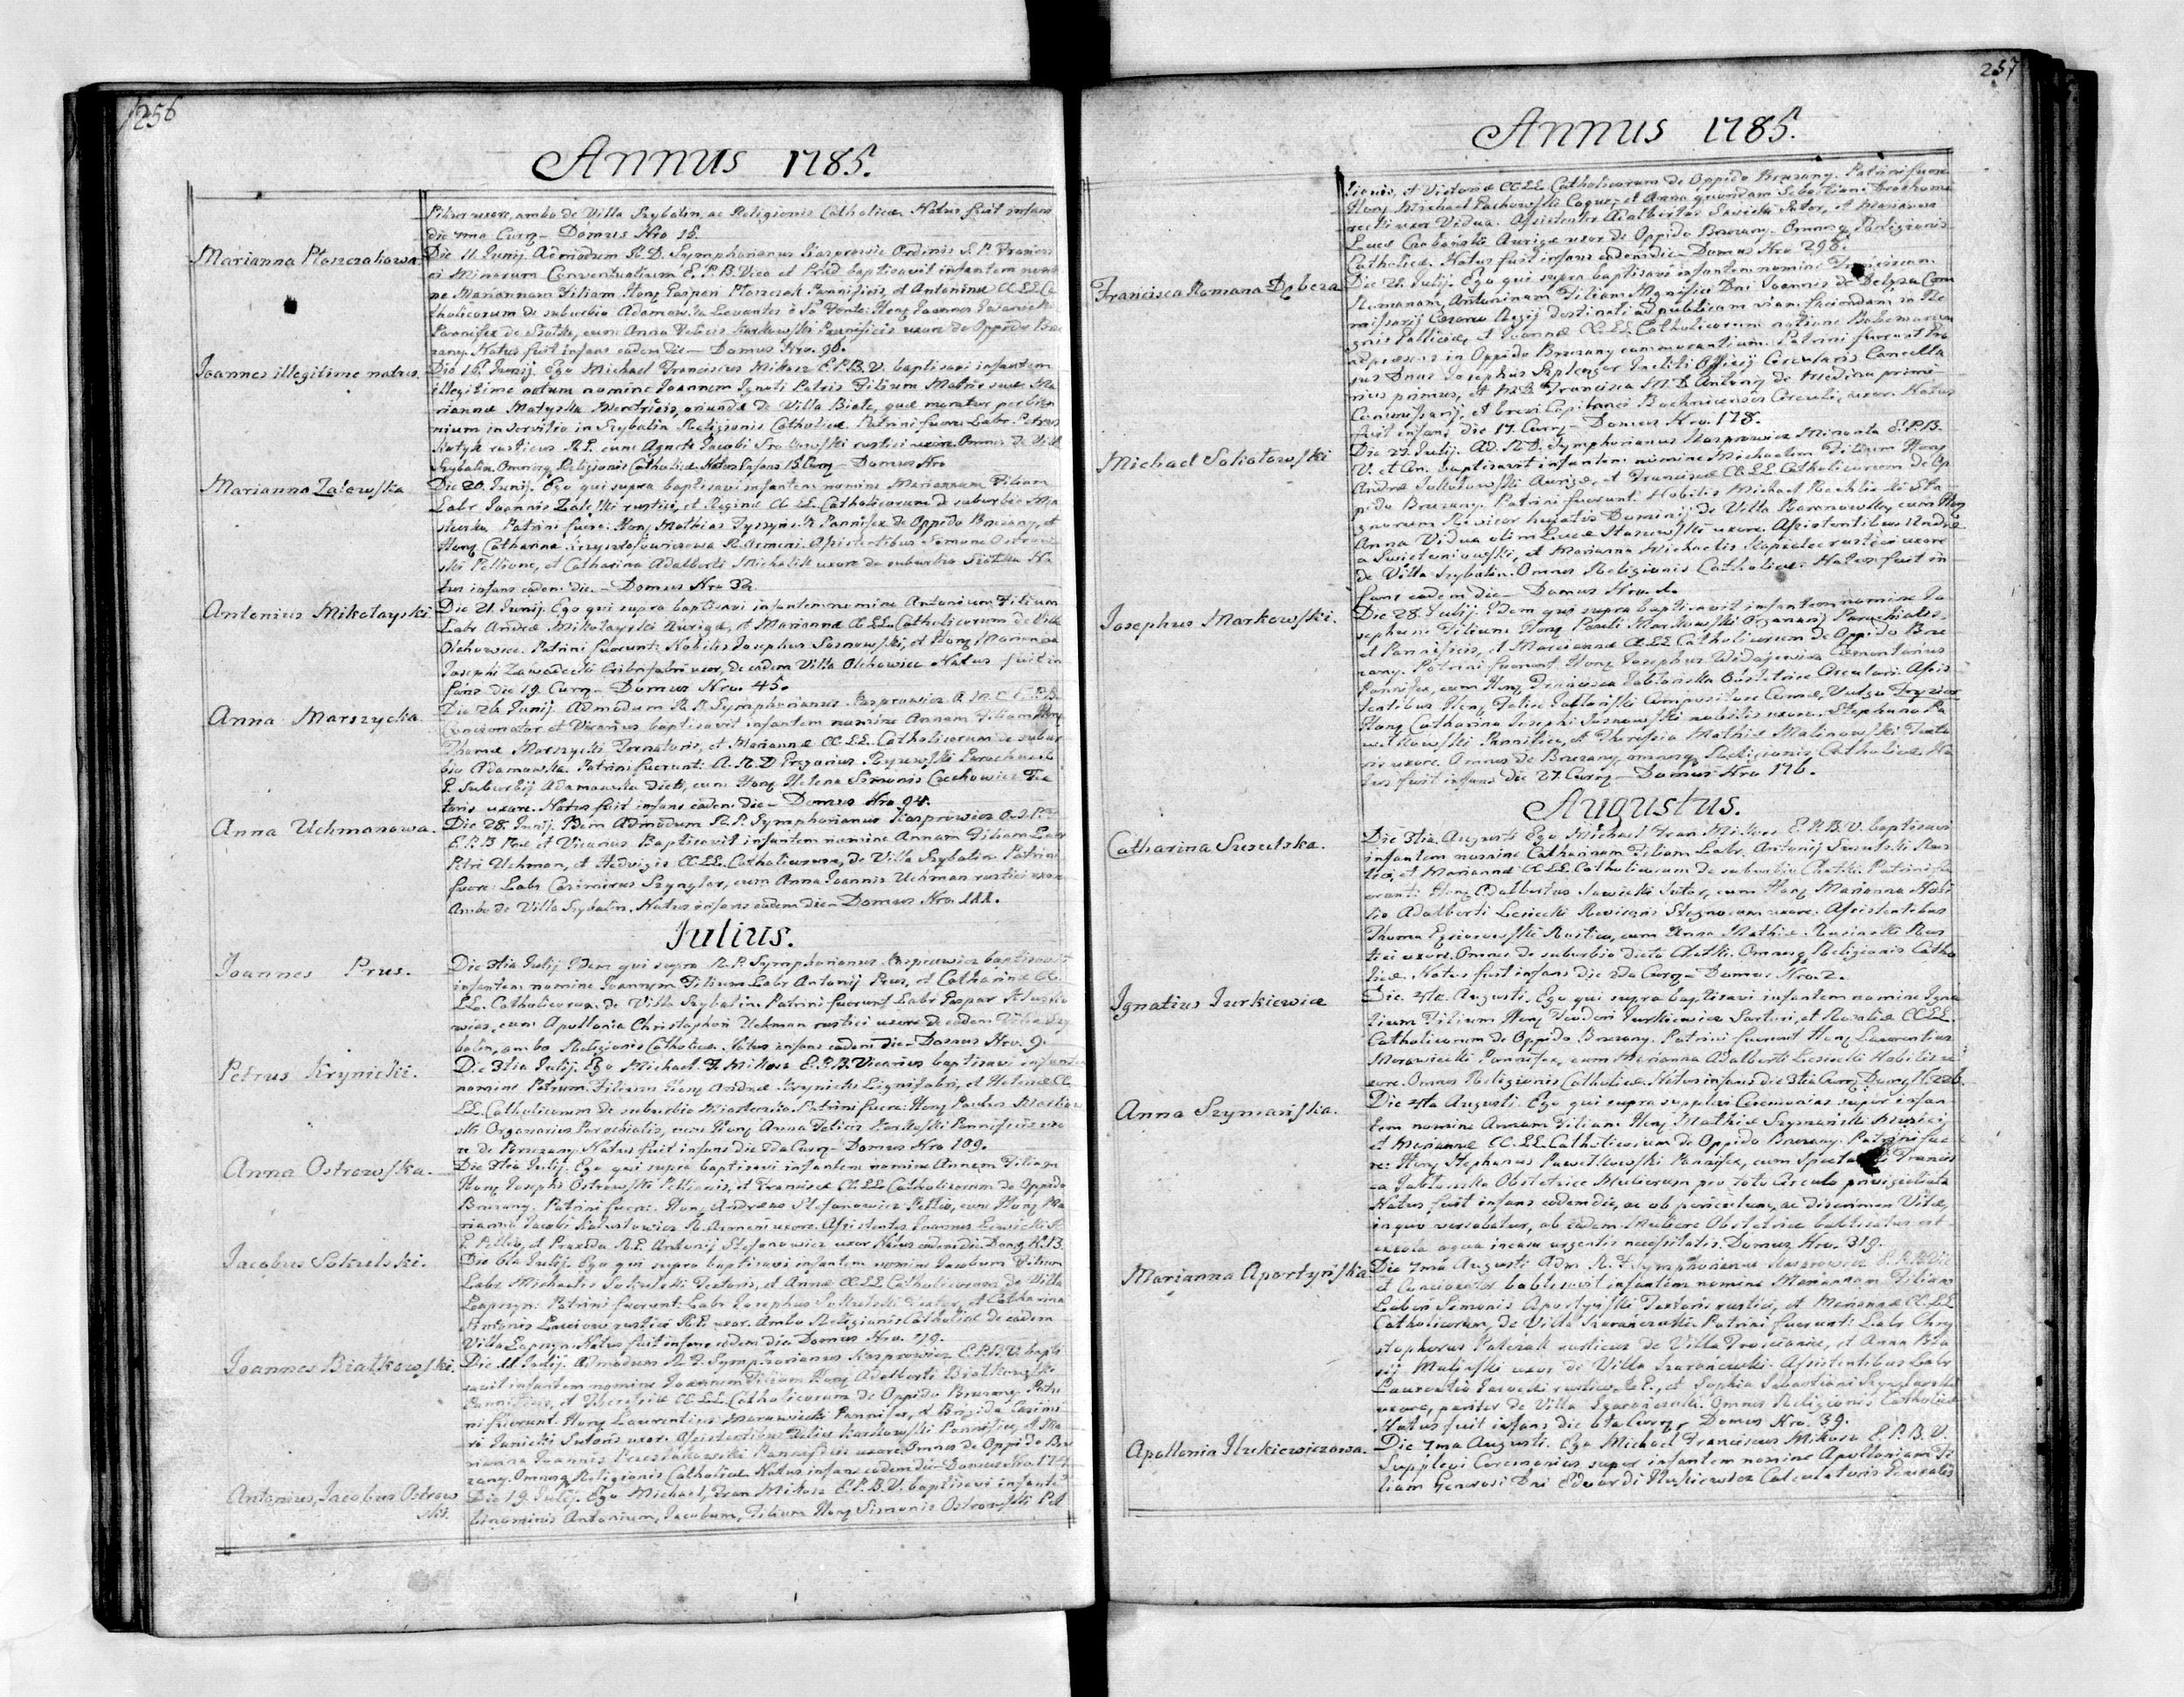 256
Annus 1785.
uxore, ambo de Villa Szybalin, ac Religionis Catholicæ. Natus fuit infans
die 7ma Curq – Domus Nro 15.
Marianna Ptaszczakowa
Die 11 Junij. Admodum R. D. Symphorianus Kasprowic Ordinis S. P. Francis
ci Minorum Conventualium E. P. B. Vica et baptisavit infantem nomi
ne Mariannam Filiam Honq Gaspari Ptaszczak Pannificis, et Antoninæ CC LL Ca
tholicorum de suburbio Adamowka Levantes è So Fonte: Honq Joannes
Pannifex de cum Anna Felicis Karkowski Pannificis uxore de Oppido Brze
zany. Natus fuit infans eadem die – Domus Nro. 90.
Joannes illegitime natus.
Die 16. Junij. Ego Michael Franciscus Mikosz E. P. B. V. baptisavi infantem
illegitime natum nomine Joannem Ignoti Patris Filium Matris suæ Ma
riannæ Matyska oriundæ de Villa Białe, quæ moratur per bien
nium in servitio in Szybalin Religionis Catholicæ. Patrini fuere Labr. Petrus
rusticus R. P. cum Agneta Jacobi rustici uxore. Omnes de Villa
Szybalin. Omnesq Religionis Catholicæ. Natus Infans 15 Curq – Domus Nro
Marianna Zalewska
Die 20. Junij. Ego qui supra baptisavi infantem nomine Mariannam Filiam
Labr. Joannis Zalewski rustici, et Reginæ CC LL Catholicorum de suburbio Mia
steczko. Patrini fuere: Honq Mathias Pannifex de Oppido Brzezany, et
Honq Catharina R. Armeni. Assistentibus Simone Ostrow
ski Pellione, et Catharina Adalberti Michalik uxore de suburbio Na
tus infans eadem die. – Domus Nro 32.
Antonius Mikołayski
Die 21. Junij. Ego qui supra baptisavi infantem nomine Antonium Filium
Labr Andreæ Mikołayski Aurigæ, et Mariannæ CC LL. Catholicorum de Villa
Olchowiec. Patrini fuerunt: Nobilis Josephus Sosnowski, et Honq Marianna
Josephi Zawadecki Cribrifabri uxor, de eadem Villa Olchowiec Natus fuit in
fans die 19. Curq – Domus Nro. 45.
Anna Marszycka
Die 26 Junij. Admodum R. P. Symphorianus Kasprowicz
Concionator et Vicarius baptisavit infantem nomine Annam Filiam Honq
Thomæ Marszycki Tornatoris, et Mariannæ CC. LL. Catholicorum de subur
bio Adamowka. Patrini fuerunt: A. R. D. Gregorius Parochus
Suburbij Adamowka dicti, cum Honq Helena Simonis Czechowicz Tex
toris uxore. Natus fuit infans eadem die – Domus Nro 94.
Anna Uchmanowa.
Die 28. Junij. Idem Admodum R. P. Symphorianus Kasprowicz
E. P. B. et Vicarius Baptisavit infantem nomine Annam Filiam Labr
Petri Uchman, et Hedvigis CC LL. Catholicorum, de Villa Szybalin Patrini
fuere: Labr Casimirus Szyngler, cum Anna Joannis Uchman rustici uxore
Ambo de Villa Szybalin. Natus infans eadem die – Domus Nro. 111.
Julius.
Joannes Prus.
Die 3tia Julij Idem qui supra R. P. Symphorianus Kasprowicz baptisavit
infantem nomine Joannem Filium Labr Antonij Prus, et Catharinæ CC.
LL. Catholicorum de Villa Szybalin. Patrini fuerunt Labr Gaspar
wicz, cum Apollonia Christophori Uchman rustici uxore de eadem Villa Szy
balin, ambo Religionis Catholicæ. Natus infans eadem die – Domus Nro. 9.
Petrus Krynicki.
Die 3tia Julij. Ego Michael F. Mikosz E. P. B. Vicarius baptisavi infantem
nomine Petrum. Filium Honq Andreæ Krynicki Lignifabri, et Helenæ CC.
LL. Catholicorum de suburbio Miasteczko. Patrini fuere: Honq Paulus Markow
ski Organarius Parochialis, cum Honq Anna Felicis Karkowski Pannificis uxo
re de Brzezany. Natus fuit infans die 2da Curq – Domus Nro 109.
Anna Ostrowska.
Die 3tia Julij. Ego qui supra baptisavi infantem nomine Annam Filiam
Honq Josephi Ostrowski Pellionis, et Franciscæ CC. LL. Catholicorum de Oppido
Brzezany. Patrini fuere: Honq Andreas Stefanowicz Pellio, cum Honq Ma
rianna Jacobi R. Armeni uxore. Assistentes Joannes
Pellio, et R. P. Antonij Stefanowicz uxor Natus eadem die. N. 13.
Jacobus Sokulski.
Die 6ta Julij. Ego qui supra baptisavi infantem nomine Jacobum Filium
Labr Michaelis Sokulski Textoris, et Annæ CC LL Catholicorum de Villa
Łapszyn: Patrini fuerunt: Labr Josephus Sokulski Textor, et Catharina
Antonij rustici R. P. uxor. Ambo Religionis Catholicæ de eadem
Villa Łapszyn Natus fuit infans eadem die Domus Nro. 19.
Joannes Białkowski.
Die 11 Julij. Admodum R. P. Symphorianus Kasprowicz E. P. B. V. bapti
savit infantem nomine Joannem Filium Honq Adalberti Białkowski
Pannificis, et Theresiæ CC. LL. Catholicorum de Oppido Brzezany. Patri
ni fuerunt. Honq Laurentius Morawiecki Pannifex, et Brigida Casimi
ri Janicki Sutoris uxor. Assistentibus Felice Karkowski Pannifice, et Ma
rianna Joannis Pannificis uxore. Omnes de Oppido Brze
zany. Omnesq Religionis Catholicæ Natus infans eadem die – Domus Nro 174
Antonius, Jacobus Ostrow
ski.
Die 19. Julij. Ego Michael Fran Mikosz E. P. B. V. baptisavi infantem
binominis Antonium, Jacobum, Filium Honq Simonis Ostrowski Pel
257
Annus 1785.
lionis, et Victoriæ CC. LL. Catholicorum de Oppido Brzezany. Patrini fuere
Honq Michael Pachowski Coquus, et Anna quondam Sebastiani
Vidua. Assistentes Adalbertus Sawicki Sutor, et Marianna
Lucæ Aurigæ uxor de Oppido Brzezany. Omnesq Religionis
Catholicæ. Natus fuit infans eadem die – Domus Nro 298.
Francisca Romana Dąbcza
Die 21. Julij. Ego qui supra baptisavi infantem nomine Franciscam
Romanam, Antoninam Filiam Magnifici Dni Joannis de Com
missarij Cæsareo Regij destinati ad publicam viam faciendam in Re
gnis Galliciæ, et Joannæ CC. LL. Catholicorum natione Bohemorum
ad præsens in Oppido Brzezany commorantium. Patrini fuerunt
Dnus Josephus Inclyti Officij Circularis Cancella
rius primus, et Francisca M. D. Antonij de Medina primi
Commissarij, et Capitanei Bochniensis Circuli, uxor. Natus
fuit infans die 17. Curq – Domus Nro. 178.
Michael Soliatowski
Die 27. Julij. Ad. R. D. Symphorianus Kasprowicz Minorita E. P. B.
V. et Con. baptisavit infantem nomine Michaelem Filium Honq
Andreæ Aurigæ, et Franciscæ CC. LL. Catholicorum de Op
pido Brzezany. Patrini fuerunt: Nobilis Michael Sta
gnorum Revisor hujatis Dominij de Villa Baranowka, cum Honq
Anna Vidua olim Lucæ uxore. Assistentibus Andre
a et Marianna Michaelis rustici uxore
de Villa Szybalin. Omnes Religionis Catholicæ. Natus fuit in
fans eadem die – Domus Nro. 1.
Josephus Markowski.
Die 28. Julij. Idem qui supra baptisavit infantem nomine Jo
sephum Filium Honq Pauli Markowski Organarij Parochialis,
et Pannificis, et Mariannæ CC. LL Catholicorum de Oppido Brze
zany. Patrini fuerunt Honq Josephus Widajewicz
Pannifex, cum Honq Francisca Jabłońska Obstetrice Circulari Assis
tentibus Honq Felice Jabłoński Compositore Comæ, Vulgo Fryzier
Honq Catharina Josephi Sosnowski nobilis uxore. Stephano Pa
wełkowski Pannifice, et Theresia Mathiæ Malinowski Texto
ris uxore. Omnes de Brzezany, omnesq Religionis Catholicæ, Na
tus fuit infans die 27. Curq – Domus Nro 176.
Augustus.
Catharina Suszulska.
Die 3tia Augusti Ego Michael Fran Mikosz E. P. B. V. baptisavi
infantem nomine Catharinam Filiam Labr. Antonij Suszulski Rus
tici, et Mariannæ CC. LL. Catholicorum de suburbio Chatki. Patrini fu
erunt: Honq Adalbertus Sawicki Sutor, cum Honq Marianna Nobi
lis Adalberti Lesiecki Revisoris Stagnorum uxore. Assistentibus
Thoma Rustico, cum Anna Mathiæ Rus
tici uxore. Omnes de suburbio dicto Chatki. Omnesq Religionis Catho
licæ. Natus fuit infans die 2da Curq – Domus Nro. 2.
Ignatius Jurkiewicz
Die 4ta. Augusti. Ego qui supra baptisavi infantem nomine Igna
tium Filium Honq Teodori Jurkiewicz Sartori, et Rosaliæ CC LL.
Catholicorum de Oppido Brzezany. Patrini fuerunt Honq Laurentius
Morawiecki Pannifex, cum Marianna Adalberti Lesiecki Nobilis u
xore. Omnes Religionis Catholicæ. Natus infans die 3tia Curq N. 226.
Anna Szymańska.
Die 4ta Augusti. Ego qui supra supplevi Ceremonias super infan
tem nomine Annam Filiam Honq Mathiæ Szymański
et Mariannæ CC. LL. Catholicorum de Oppido Brzezany. Patrini fue
re: Honq Stephanus Pawełkowski Pannifex, cum Francis
ca Jabłońska Obstetrice Mulierum pro toto Circulo privilegiata
Natus fuit infans eadem die, ac ob periculum, ac discrimen Vitæ,
in quo versabatur, ab eadem Muliere Obstetrice babtisatus est
ex sola aqua in casu urgentis necessitatis. Domus Nro. 319.
Marianna Aportyńska
Die 7ma Augusti Adm R. P. Symphorianus Kasprowicz E. P. B. Vic
et Concionator babtisavit infantem nomine Mariannam Filiam
Labor Simonis Textoris rustici, et Mariannæ CC. LL
Catholicorum, de Villa Szarańczuki. Patrini fuerunt: Labr Chry
stophorus Patczak rusticus de Villa Trościaniec, et Anna Bła
sij Maliński uxor de Villa Szarańczuki. Assistentibus Labr
Laurentio rustico, R. P., et Sophia Sebastiani
uxore, pariter de Villa Szarańczuki. Omnes Religionis Catholicæ
Natus fuit infans die 6ta Curq, Domus Nro. 39.
Apollonia Ilukiewiczowa.
Die 7ma Augusti. Ego Michael Franciscus Mikosz E. P. B. V.
Supplevi Ceremonias super infantem nomine Apolloniam Fi
liam Generosi Dni Eduardi Ilukiewicz Calculatoris Generalis